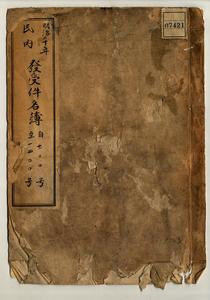 明治十年
民内
發受件名簿
自七〇〇号
至一四〇六号
07421